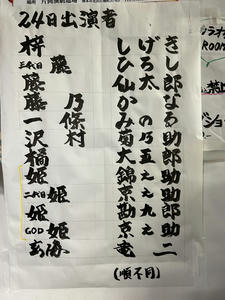 24日出演者
梓 しげき
三代目 藤 ひろし
藤 仙太郎
藤乃 かな
沢村 菊乃助
橘 大五郎
姫 錦之助
二代目 姫 京之助
姫 勘九郎
GOD 姫 京之助
玄海 竜二
(順不同)